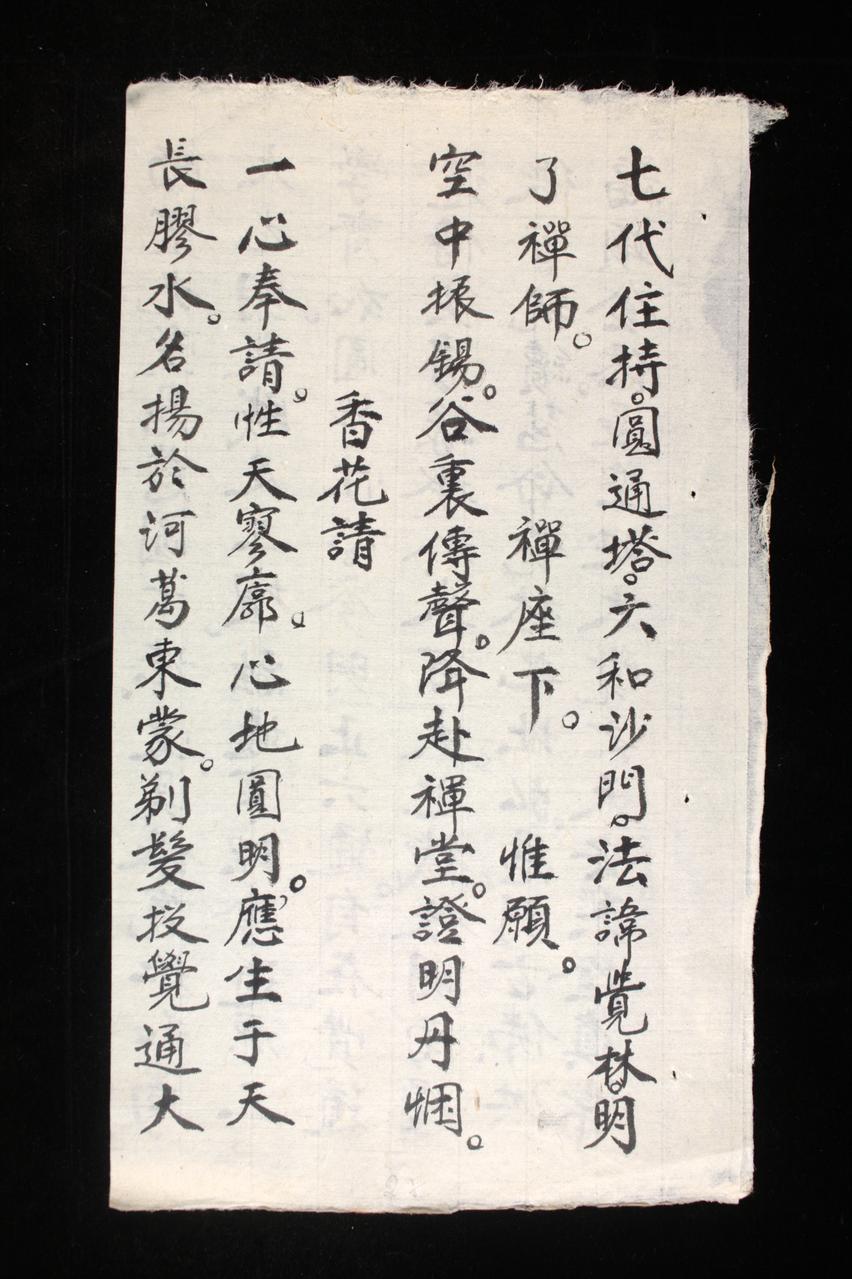 七代住持。圓通塔。六和沙門。法諱覺林。明
了禪師。禪座下。惟願。
空中振錫。谷裏傳聲。降赴禪堂。證明丹悃。
香花請
一心奉請。性天寥廓。心地圓明。應生于天
長膠水。名揚於河葛東蒙。剃髮投覺通大